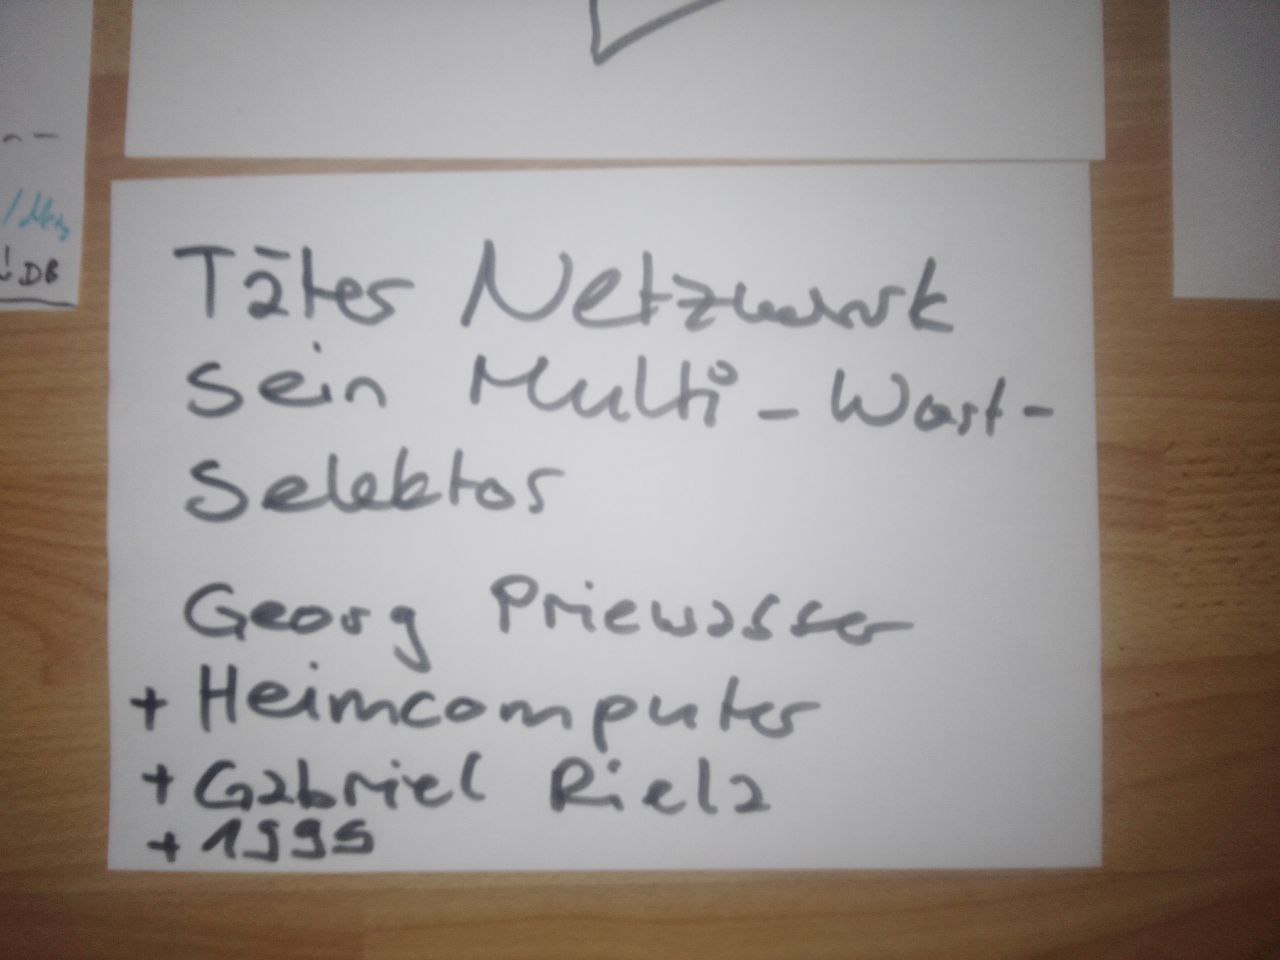 DB
Täter Netzwerk
sein Multi-Wort-
Selektor
Georg Priewasser
+ Heimcomputer
+ Gabriel Riela
+ 1995